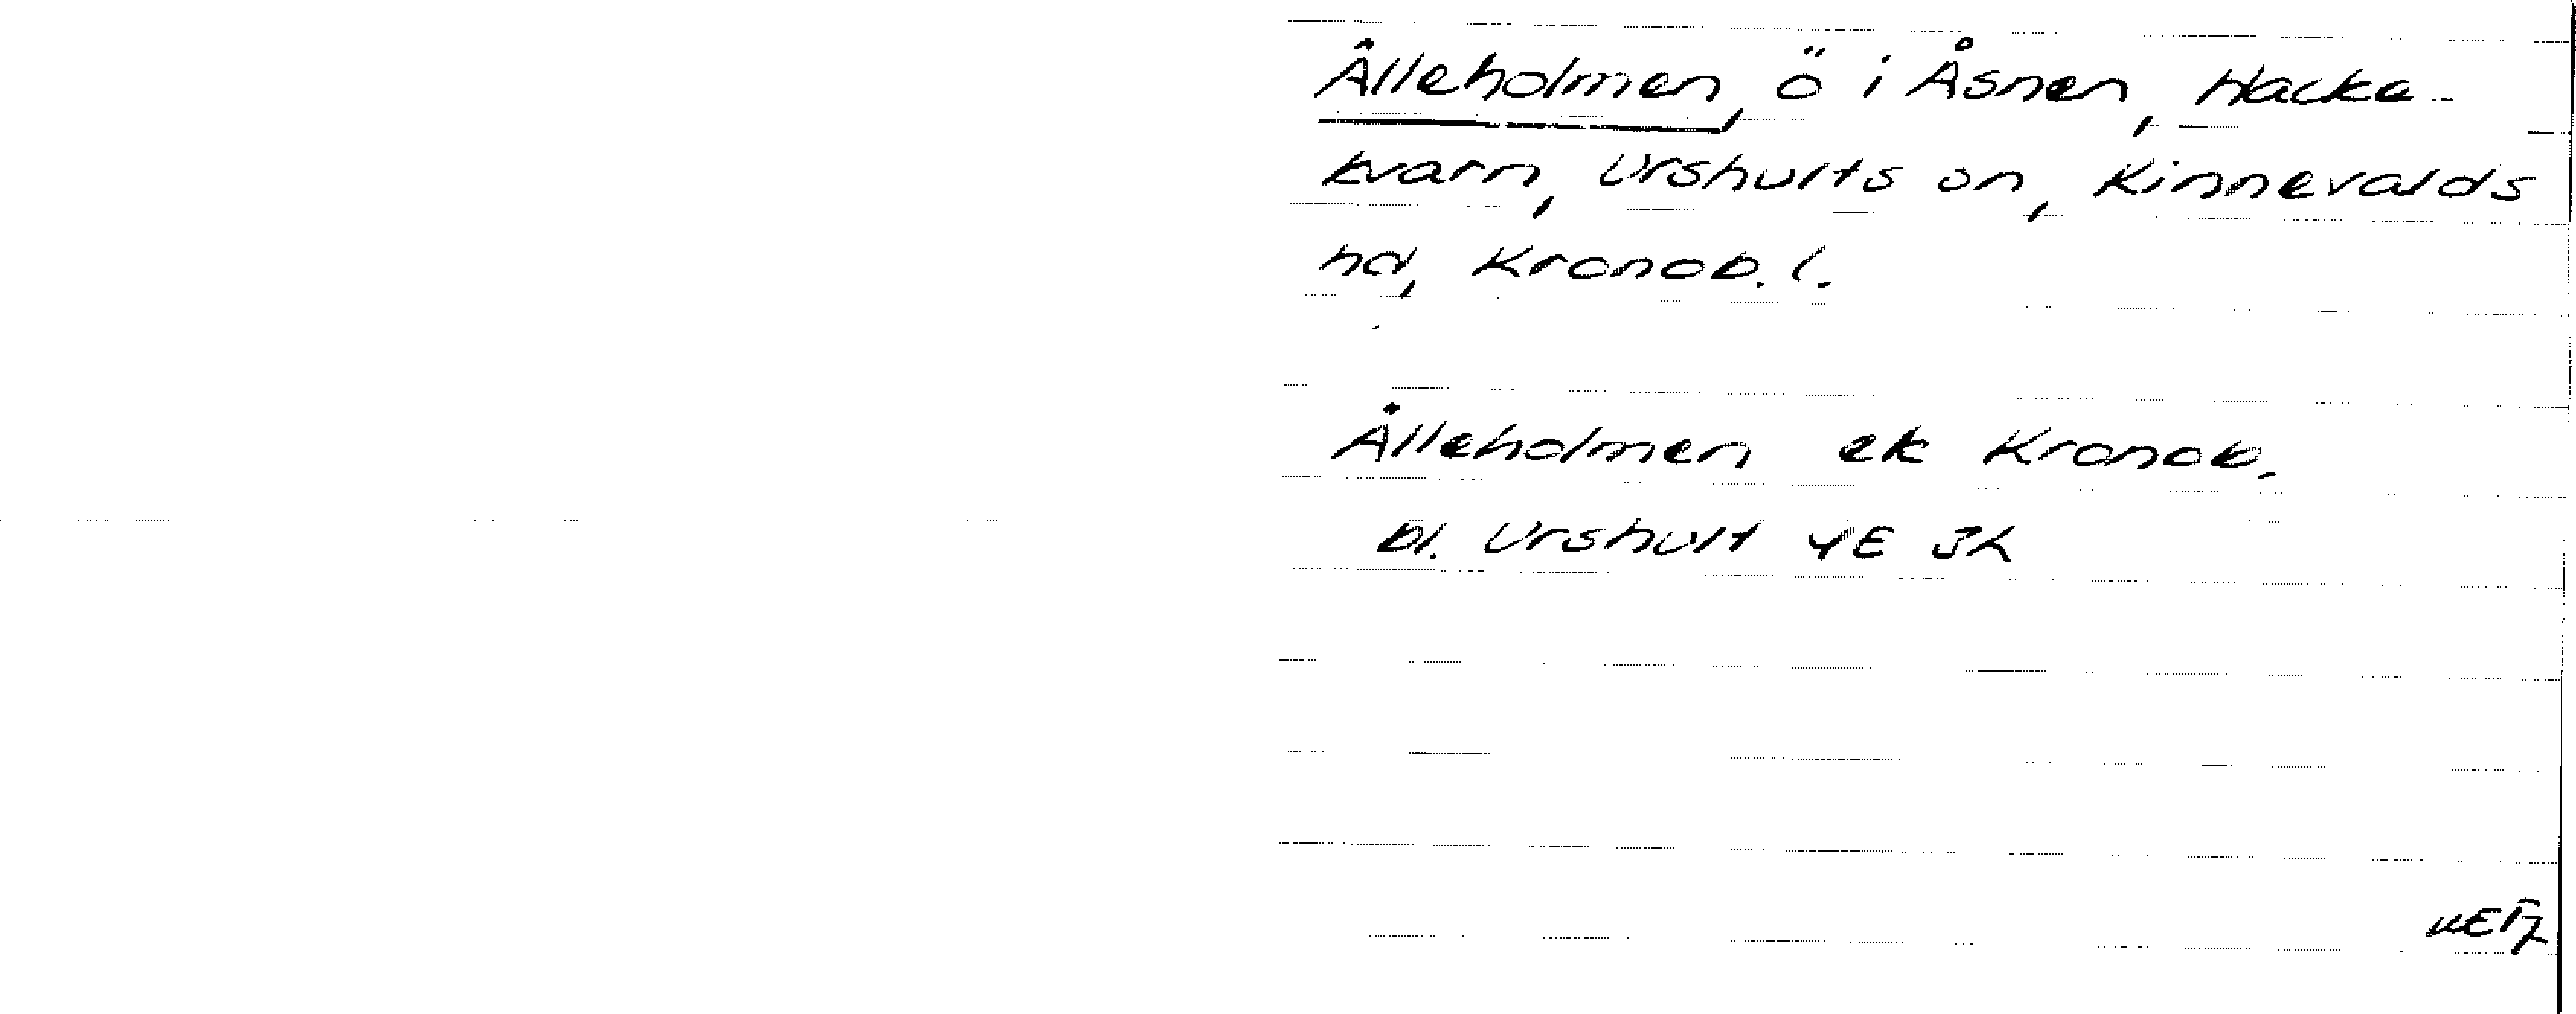 Ålleholmen, ö i Åsnen, Hacke-
kvarn, Urshults sn, Kinnevalds
hd, Kronob. l.
Ålleholmen ek Kronob.
bl. Urshult 4E 3h